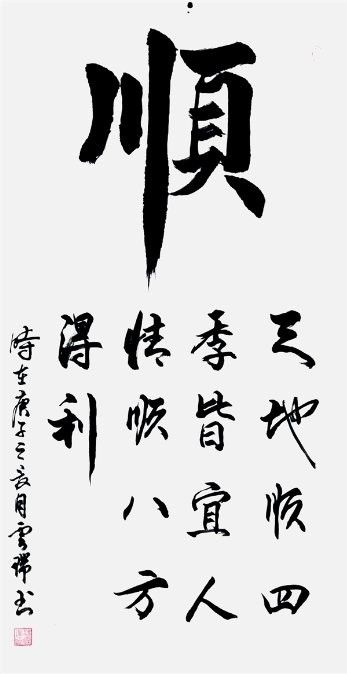 順
天地順四
季皆宜人
情順八方
得利
時在庚子之亥月雲瑞书